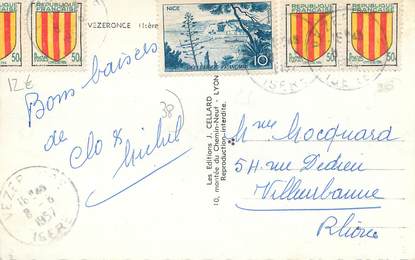 REPUBLIQUE FRANÇAISE
Postes 50c
VEZERONCE (Isère)
NICE
REPUBLIQUE FRANÇAISE
10
REPUBLIQUE FRANÇAISE
50c
REPUBLIQUE FRANÇAISE
Postes 50c
12€
Bons baisers
de
Clo & Michel
38
Les Editions J. CELLARD
10, montée du Chemin-Neuf - LYON
Reproduction interdite.
Mme Mocquard
54 rue Dedieu
Villeurbanne
Rhône
VEZER
16H
8-6
1957
ISERE
ISERE